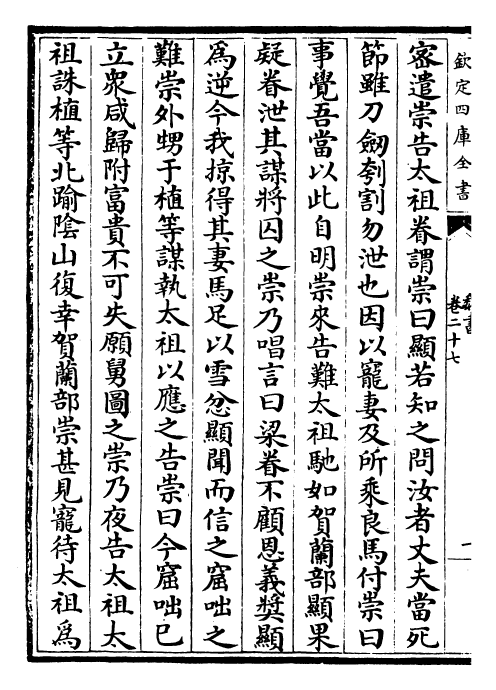 欽定四庫全書
魏書
卷二十七
一
密遣崇告太祖眷謂崇曰顯若知之問汝者丈夫當死
節雖刀劔刳割勿泄也因以寵妻及所乘良馬付崇曰
事覺吾當以此自明崇來告難太祖馳如賀蘭部顯果
疑眷泄其謀將囚之崇乃唱言曰梁眷不顧恩義奬顯
為逆今我掠得其妻馬足以雪忿顯聞而信之窟咄之
難崇外甥于植等謀執太祖以應之告崇曰今窟咄已
立衆咸歸附富貴不可失願舅圖之崇乃夜告太祖太
祖誅植等北踰陰山復幸賀蘭部崇甚見寵待太祖為